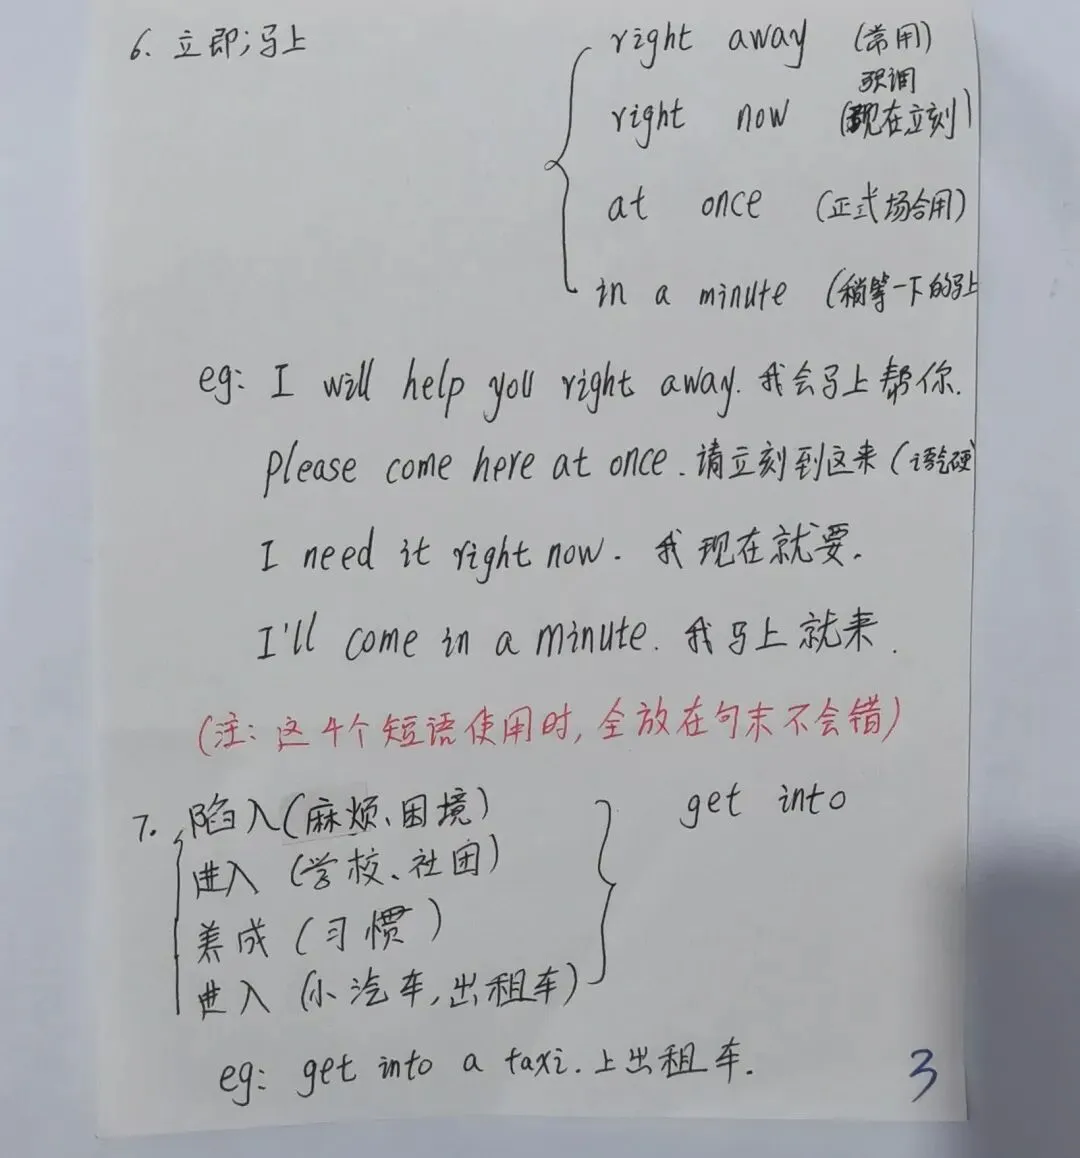 6. 立即;马上
right away (常用)
强调
right now (现在立刻)
at once (正式场合用)
in a minute (稍等一下的马上
eg: I will help you right away. 我会马上帮你.
please come here at once. 请立刻到这来 (语气硬)
I need it right now. 我现在就要.
I'll come in a minute. 我马上就来.
(注: 这4个短语使用时, 全放在句末不会错)
7. 陷入(麻烦、困境)
get into
进入 (学校、社团)
养成 (习惯)
进入 (小汽车, 出租车)
eg: get into a taxi. 上出租车.
3